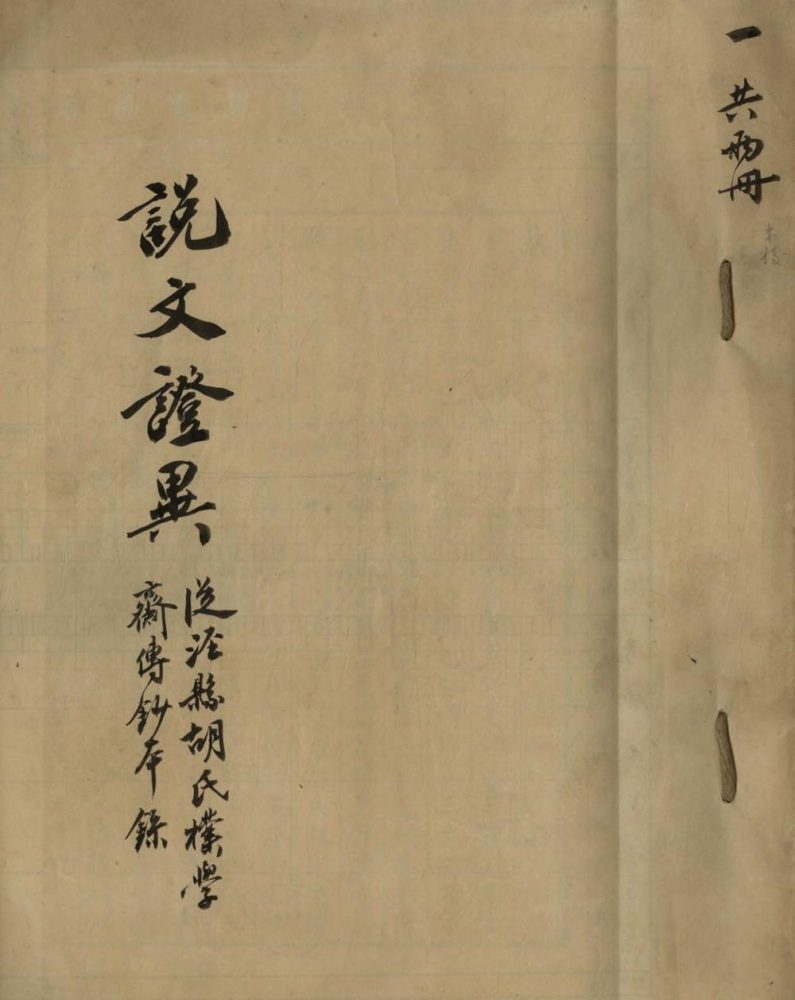 一 共兩册
說文證異
從涇縣胡氏樸學
齋傳鈔本錄